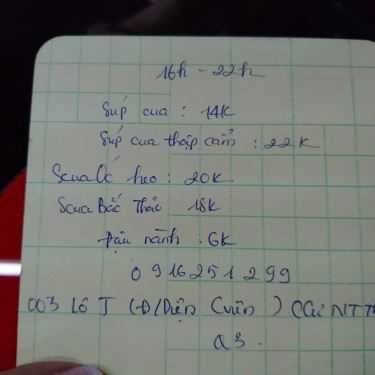 16h - 22h
Súp cua : 14K
Súp cua thập cẩm : 22K
Súp cua Óc heo : 20K
Súp cua Bắc Thảo 18K
Đậu nành . 6K
0916251299
003 Lô J (Đ/Diện C viên) CCư NTT
Q3.